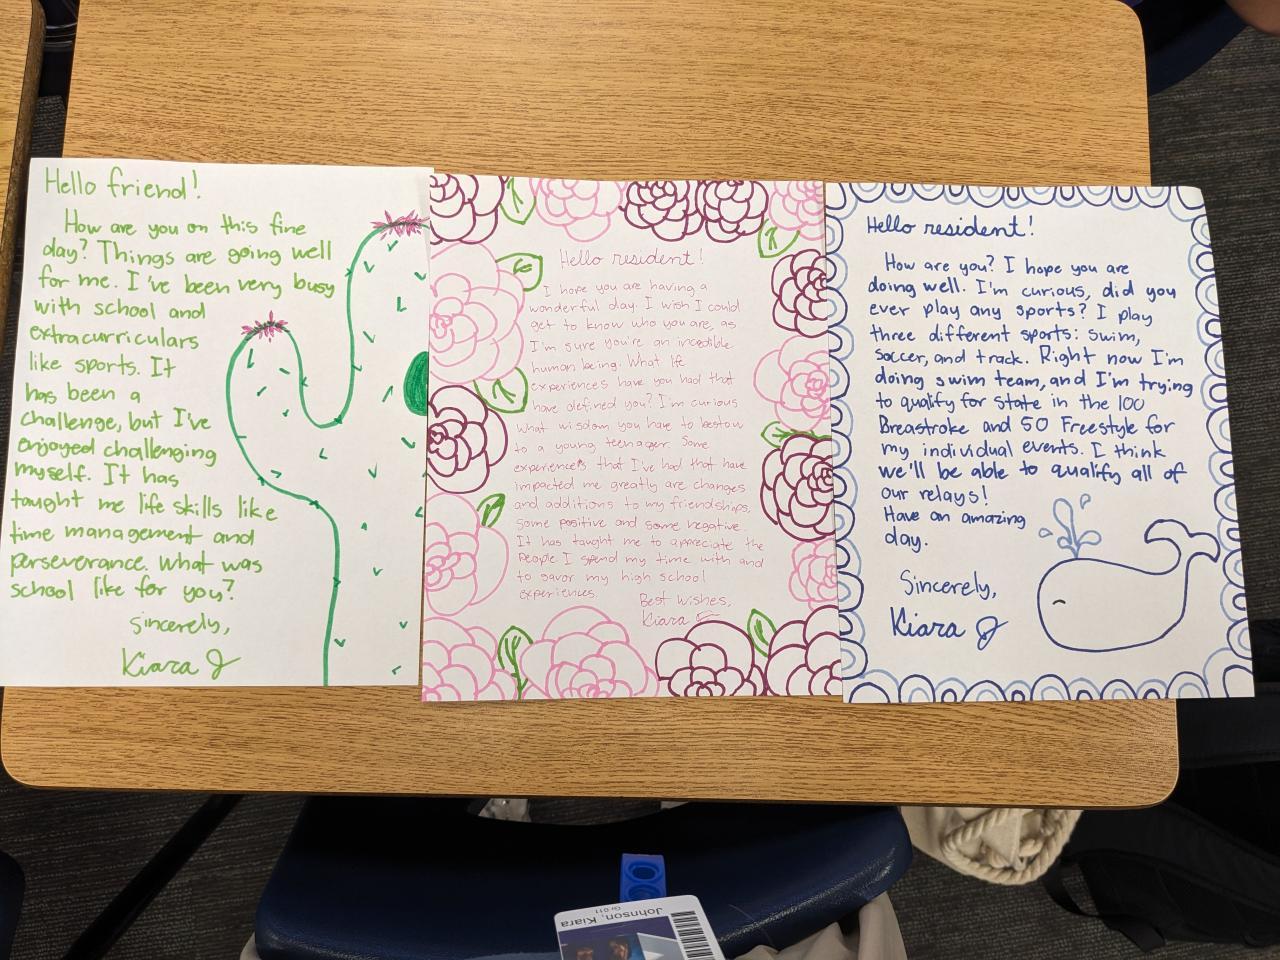 Hello friend!
How are you on this fine
day? Things are going well
for me. I've been very busy
with school and
extracurriculars
like sports. It
has been a
challenge, but I've
enjoyed challenging
myself. It has
taught me life skills like
time management and
perserverance. What was
school like for you?
Sincerely,
Kiara J
Hello resident!
I hope you are having a
wonderful day. I wish I could
get to know who you are, as
I'm sure you're an incredible
human being. What life
experiences have you had that
have defined you? I'm curious
what wisdom you have to bestow
to a young teenager. Some
experiences that I've had that have
impacted me greatly are changes
and additions to my friendships,
some positive and some negative.
It has taught me to appreciate the
people I spend my time with and
to savor my high school
experiences.
Best wishes,
Kiara J
Hello resident!
How are you? I hope you are
doing well. I'm curious, did you
ever play any sports? I play
three different sports: swim,
soccer, and track. Right now I'm
doing swim team, and I'm trying
to qualify for State in the 100
Breastroke and 50 Freestyle for
my individual events. I think
we'll be able to qualify all of
our relays!
Have an amazing
day.
Sincerely,
Kiara J
Johnson, Kiara
Gr 011